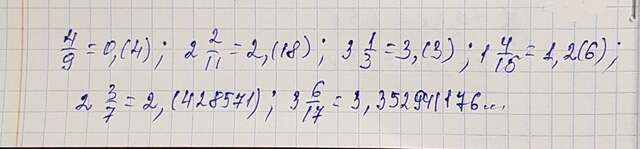 4/9 = 0,(4); 2 2/11 = 2,(18); 3 1/3 = 3,(3); 1 4/15 = 1,2(6);
2 3/7 = 2,(428571); 3 6/17 = 3,352941176...